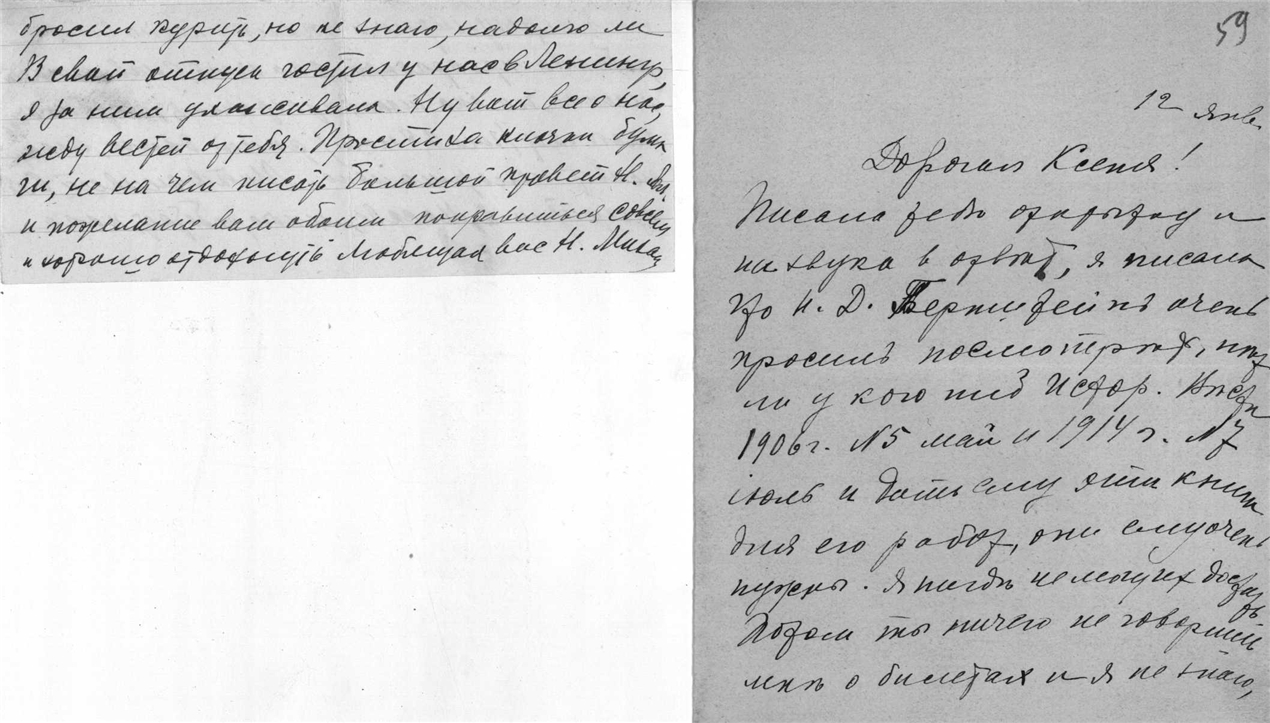 бросил курить, но не знаю, надолго ли
В свой отпуск гостил у нас в Ленингр,
я за ним ухаживала. Ну вот все о нас,
жду вестей от тебя. Прости за клочки бума
ги, не на чем писать большой привет Н.
и пожелание вам обоим поправиться совсем
и хорошо отдохнуть Любящая вас Н. Миха
59
12 янв.
Дорогая Ксеня!
Писала тебе открытку и
ни звука в ответ, я писала
что Н. Д. Бернштейнъ очень
просилъ посмотреть, нет
ли у кого ниб Истор. Вестн
1906 г. N5 май и 1914 г. N7
июль и дать ему эти книги
для его работ, они ему очень
нужны. Я нигде не могу их достать
Потом ты ничего не говоришь
мне о билетах и я не знаю,